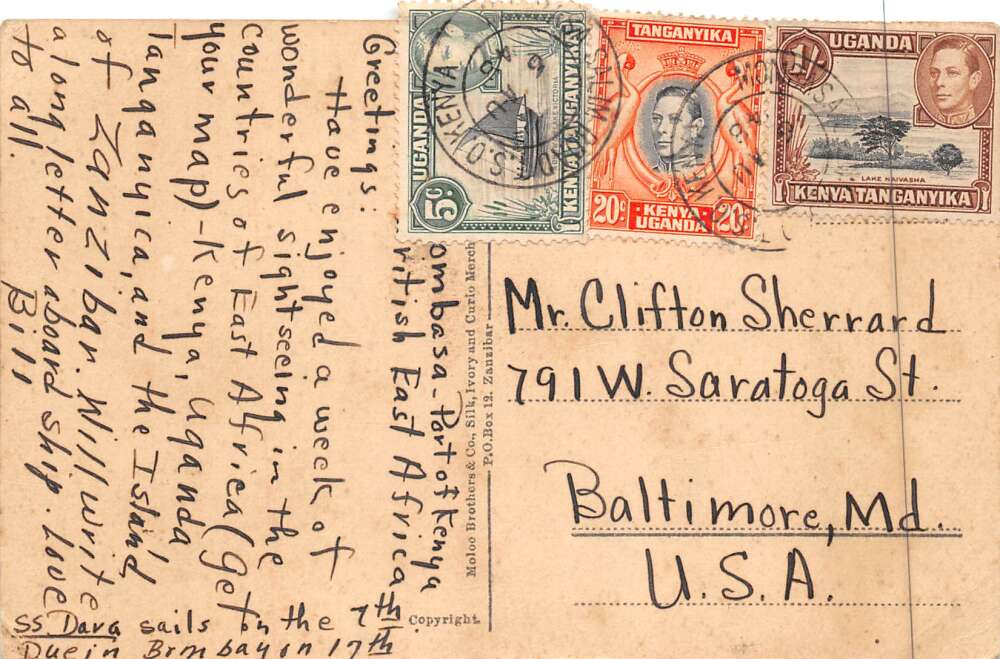 Mombasa - Port of Kenya
British East Africa
Greetings:
Have enjoyed a week of
wonderful sightseeing in the
countries of East Africa (Get
your map) - Kenya, Uganda
Tanganyica, and the Island
of Zanzibar. Will write
a long letter aboard ship. Love
to all.
Bill
SS. Dara sails on the 7th.
Due in Bombay on 17th
Copyright.
Moloo Brothers & Co., Silk, Ivory and Curio Merch
P.O. Box 12. Zanzibar
UGANDA
KENYA TANGANYIKA
5c.
LAKE VICTORIA
TANGANYIKA
20c
KENYA
UGANDA
20c
1/-
UGANDA
LAKE NAIVASHA
KENYA TANGANYIKA
KENYA
MOMBASA
Mr. Clifton Sherrard
791 W. Saratoga St.
Baltimore, Md.
U.S.A.